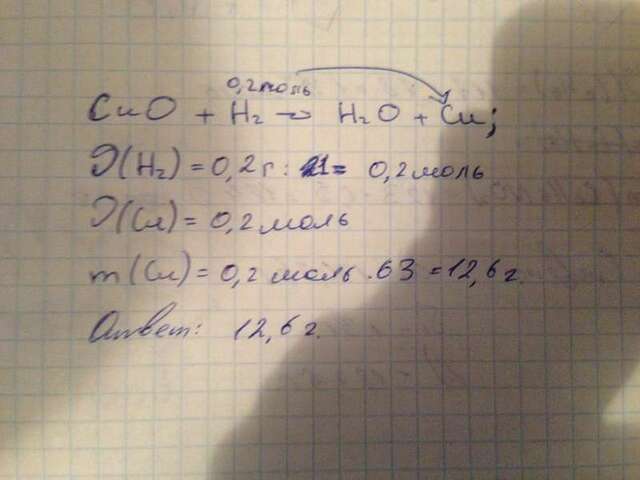 0,2 моль
CuO + H₂ → H₂O + Cu;
ν(H₂) = 0,2 г : 1 = 0,2 моль
ν(Cu) = 0,2 моль
m(Cu) = 0,2 моль · 63 = 12,6 г.
Ответ: 12,6 г.